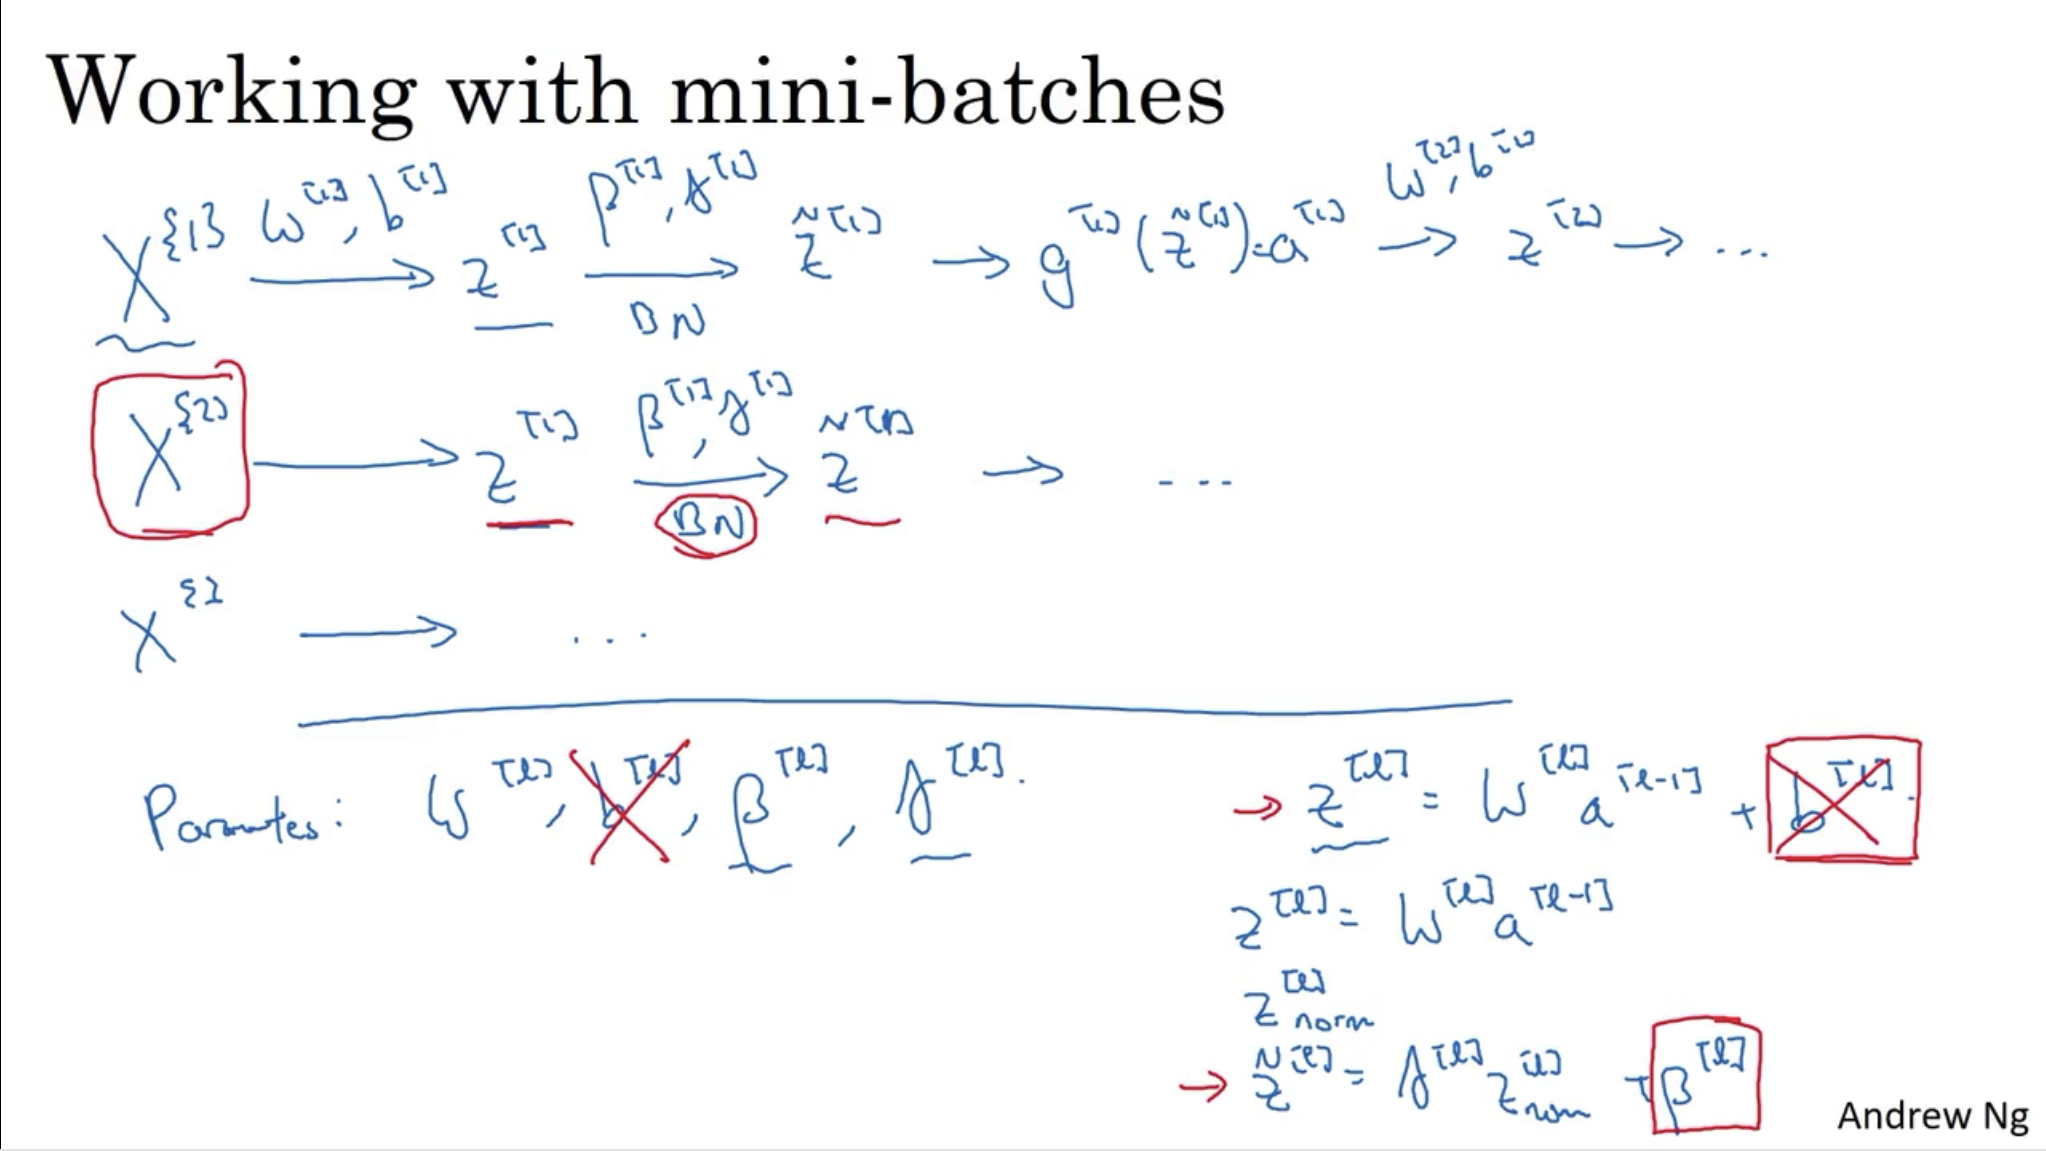 Working with mini-batches
X^{1} W^[1], b^[1] → z^[1] β^[1], γ^[1] → BN z̃^[1] → g^[1](z̃^[1]) = a^[1] W^[2], b^[2] → z^[2] → ...
X^{2} → z^[1] β^[1], γ^[1] → BN z̃^[1] → ...
X^{3} → ...
Parameters: W^[l], b^[l], β^[l], γ^[l].
→ z^[l] = W^[l] a^[l-1] + b^[l].
z^[l] = W^[l] a^[l-1]
z^[l] norm
→ z̃^[l] = γ^[l] z^[l] norm + β^[l]
Andrew Ng